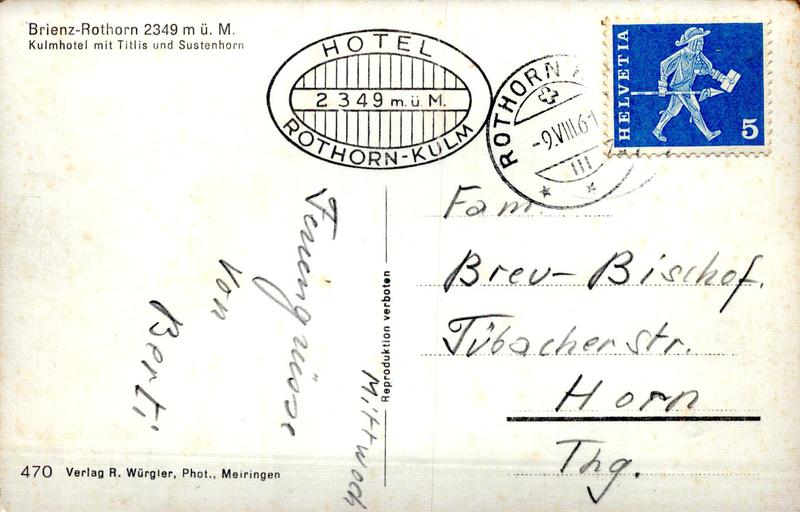 Brienz-Rothorn 2349 m ü. M.
Kulmhotel mit Titlis und Sustenhorn
HOTEL
2349 m.ü.M.
ROTHORN-KULM
ROTHORN
-9.VIII.6
III
HELVETIA
5
Feriengrüsse
von
Berti
Mittwoch
Reproduktion verboten
Fam.
Brev-Bischof.
Tübacherstr.
Horn
Thg.
470 Verlag R. Würgler, Phot., Meiringen